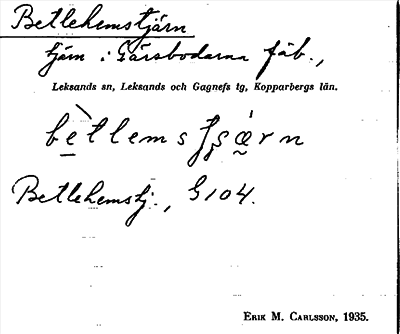 Betlehemstjärn
tjärn i Gårsbodarna fäb.,
Leksands sn, Leksands och Gagnefs tg, Kopparbergs län.
Betlehemstj., G104.
ERIK M. CARLSSON, 1935.